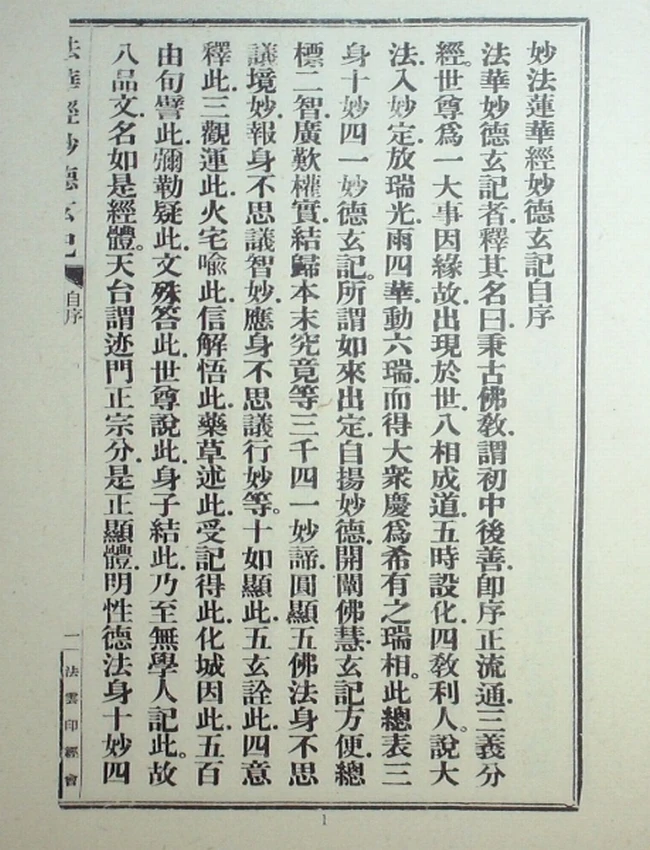 妙法蓮華經妙德玄記自序
法華妙德玄記者．釋其名曰．秉古佛教．謂初中後善．即序正流通．三義分
經。世尊爲一大事因緣故．出現於世．八相成道．五時設化．四教利人。說大
法．入妙定．放瑞光．雨四華．動六瑞．而得大衆慶爲希有之瑞相。此總表三
身十妙四一妙德玄記。所謂如來出定．自揚妙德．開闡佛慧．玄記方便．總
標二智．廣歎權實．結歸本末究竟等．三千四一妙諦．圓顯五佛法身不思
議境妙．報身不思議智妙．應身不思議行妙等。十如顯此．五玄詮此．四意
釋此．三觀運此．火宅喩此．信解悟此．藥草述此．受記得此．化城因此．五百
由旬譬此．彌勒疑此．文殊答此．世尊說此．身子結此．乃至無學人記此。故
八品文．名如是經體。天台謂迹門正宗分．是正顯體．明性德法身十妙四
法華經妙德玄記
自序
一
法雲印經會
1